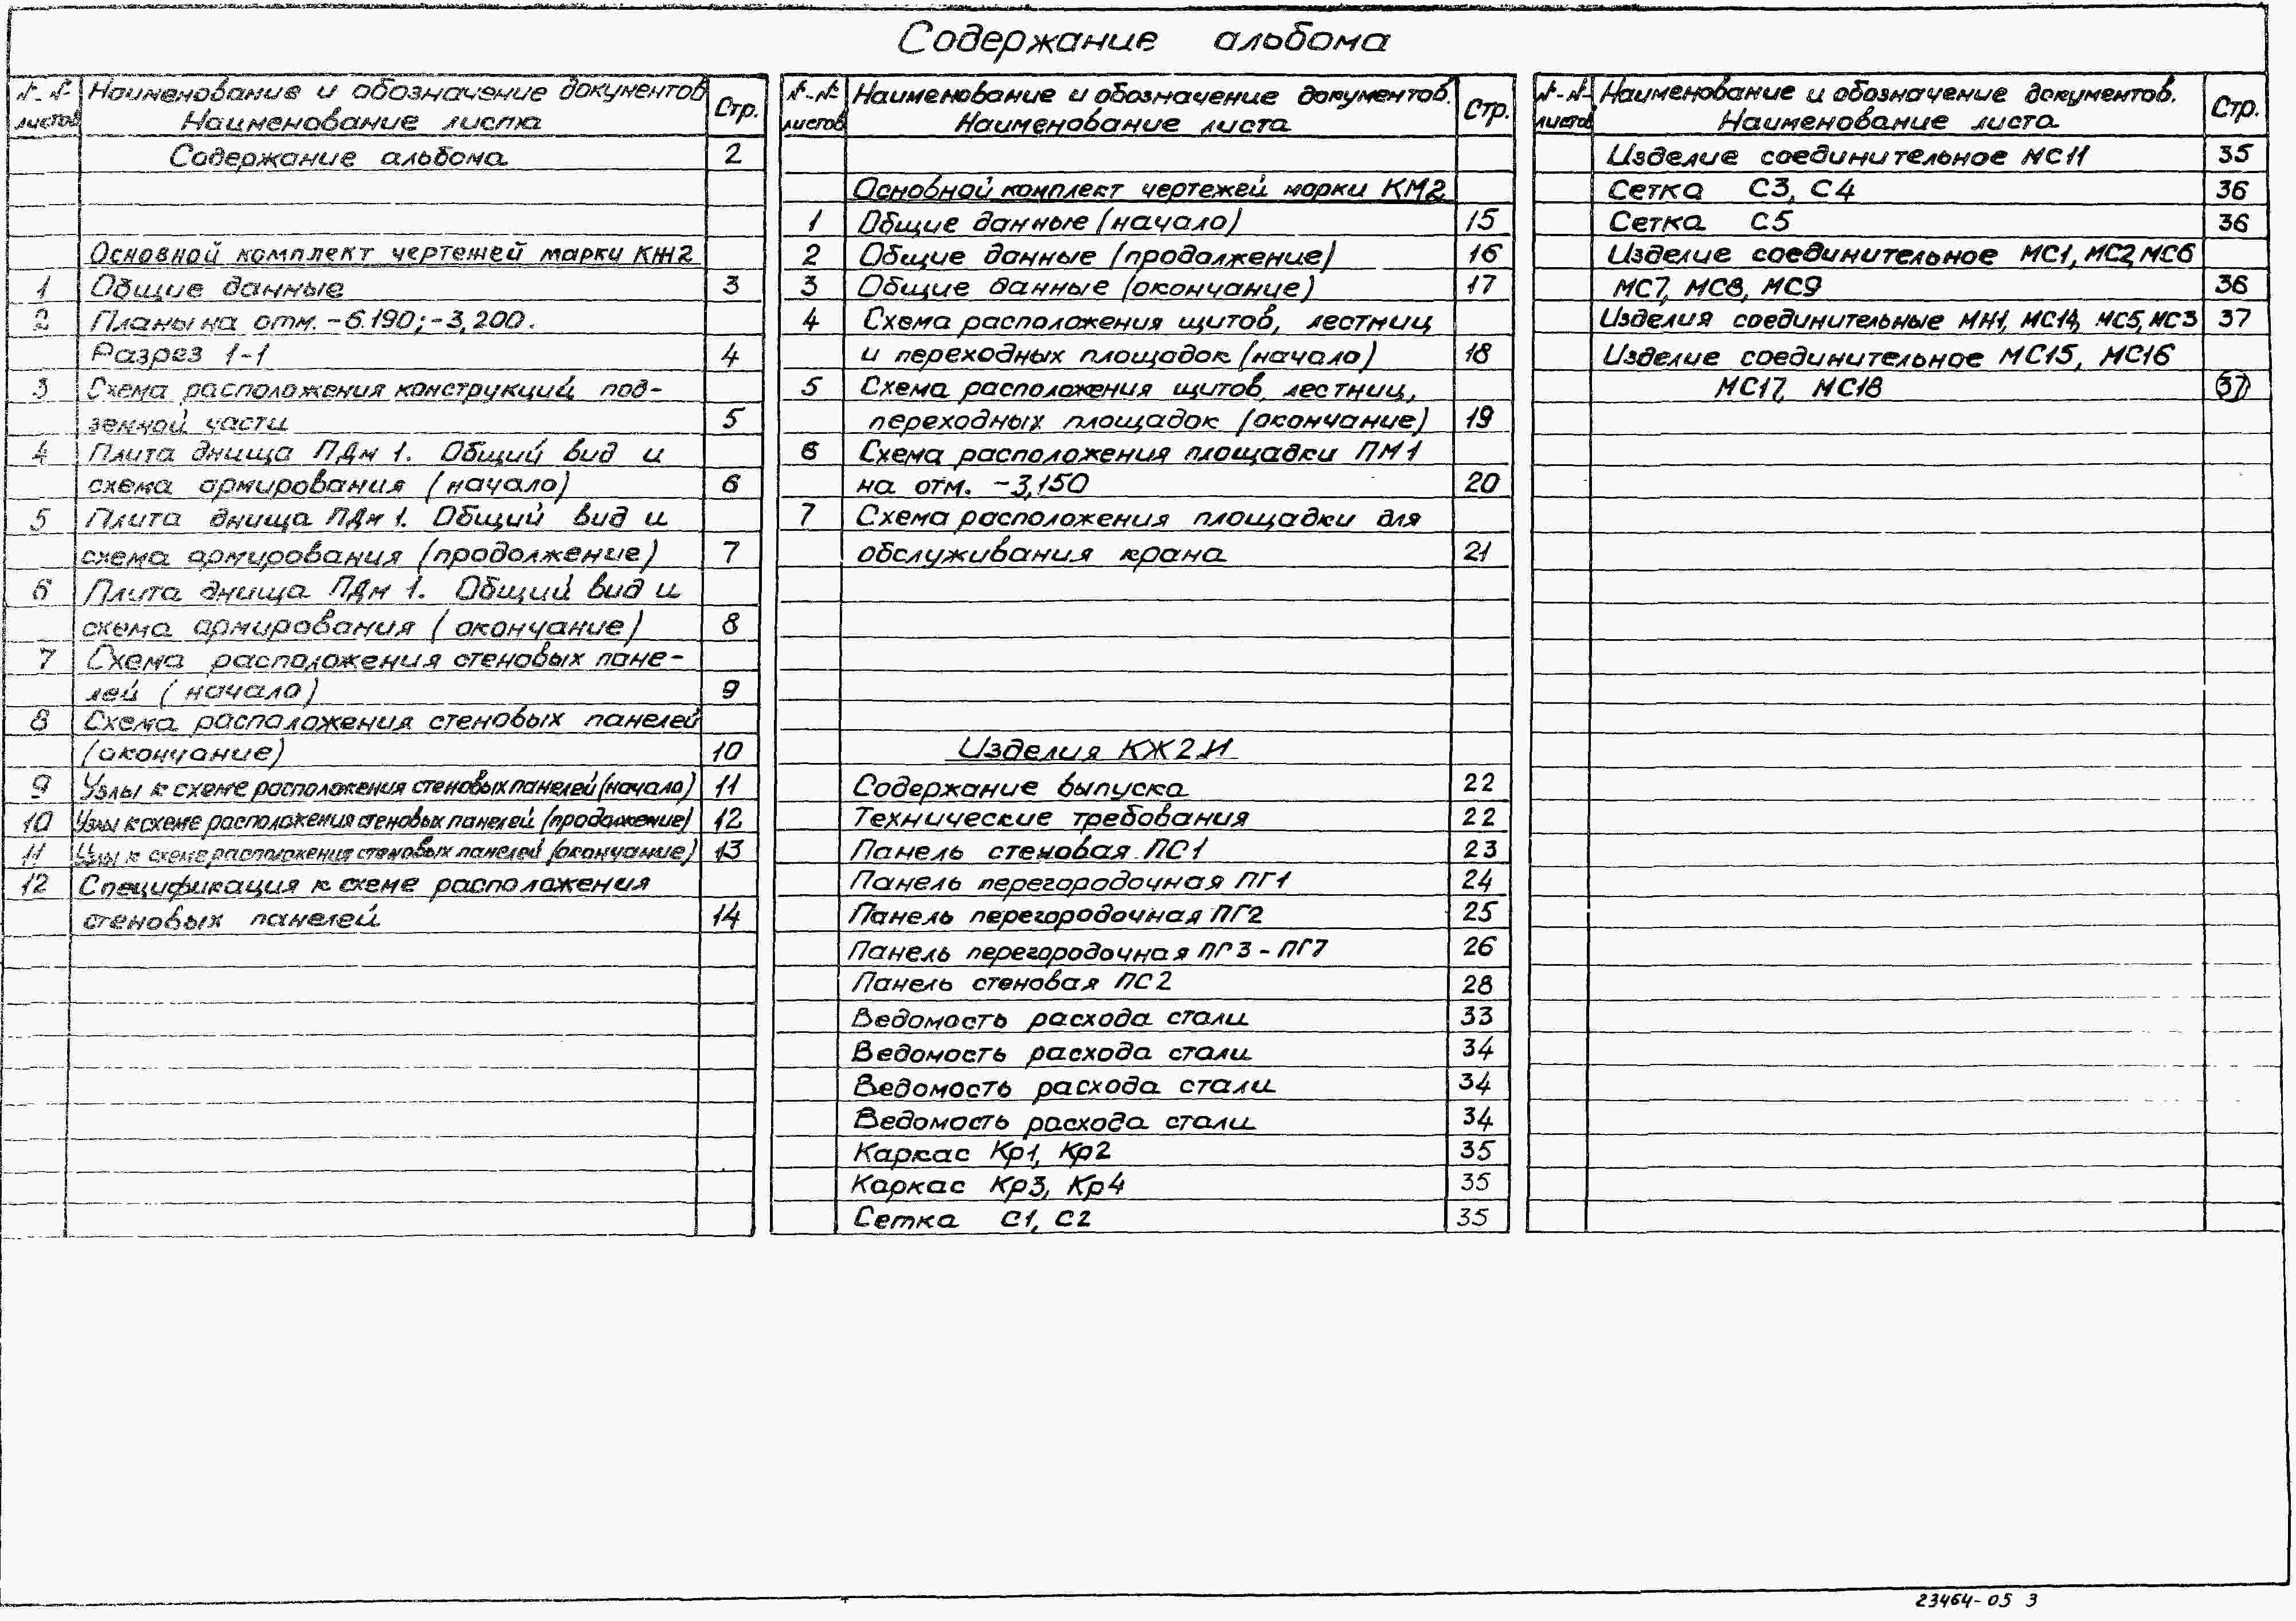 Содержание альбома
№-№ Наименование и обозначение документов Стр.
листов Наименование листа
Содержание альбома 2
Основной комплект чертежей марки КЖ2
1 Общие данные 3
2 Планы на отм. -6.190; -3,200.
Разрез 1-1 4
3 Схема расположения конструкций под-
земной части 5
4 Плита днища ПДм 1. Общий вид и
схема армирования (начало) 6
5 Плита днища ПДм 1. Общий вид и
схема армирования (продолжение) 7
6 Плита днища ПДм 1. Общий вид и
схема армирования (окончание) 8
7 Схема расположения стеновых пане-
лей (начало) 9
8 Схема расположения стеновых панелей
(окончание) 10
9 Узлы к схеме расположения стеновых панелей (начало) 11
10 Узлы к схеме расположения стеновых панелей (продолжение) 12
11 Узлы к схеме расположения стеновых панелей (окончание) 13
12 Спецификация к схеме расположения
стеновых панелей 14
№-№ Наименование и обозначение документов. Стр.
листов Наименование листа
Основной комплект чертежей марки КМ2
1 Общие данные (начало) 15
2 Общие данные (продолжение) 16
3 Общие данные (окончание) 17
4 Схема расположения щитов, лестниц
и переходных площадок (начало) 18
5 Схема расположения щитов, лестниц,
переходных площадок (окончание) 19
6 Схема расположения площадки ПМ1
на отм. -3,150 20
7 Схема расположения площадки для
обслуживания крана 21
Изделия КЖ2.И
Содержание выпуска 22
Технические требования 22
Панель стеновая ПС1 23
Панель перегородочная ПГ1 24
Панель перегородочная ПГ2 25
Панель перегородочная ПГ3 - ПГ7 26
Панель стеновая ПС2 28
Ведомость расхода стали 33
Ведомость расхода стали 34
Ведомость расхода стали 34
Ведомость расхода стали 34
Каркас Кр1, Кр2 35
Каркас Кр3, Кр4 35
Сетка С1, С2 35
№-№ Наименование и обозначение документов. Стр.
листов Наименование листа
Изделие соединительное МС11 35
Сетка С3, С4 36
Сетка С5 36
Изделие соединительное МС1, МС2, МС6
МС7, МС8, МС9 36
Изделия соединительные МН1, МС14, МС5, МС3 37
Изделие соединительное МС15, МС16
МС17, МС18 37
23464-05 3